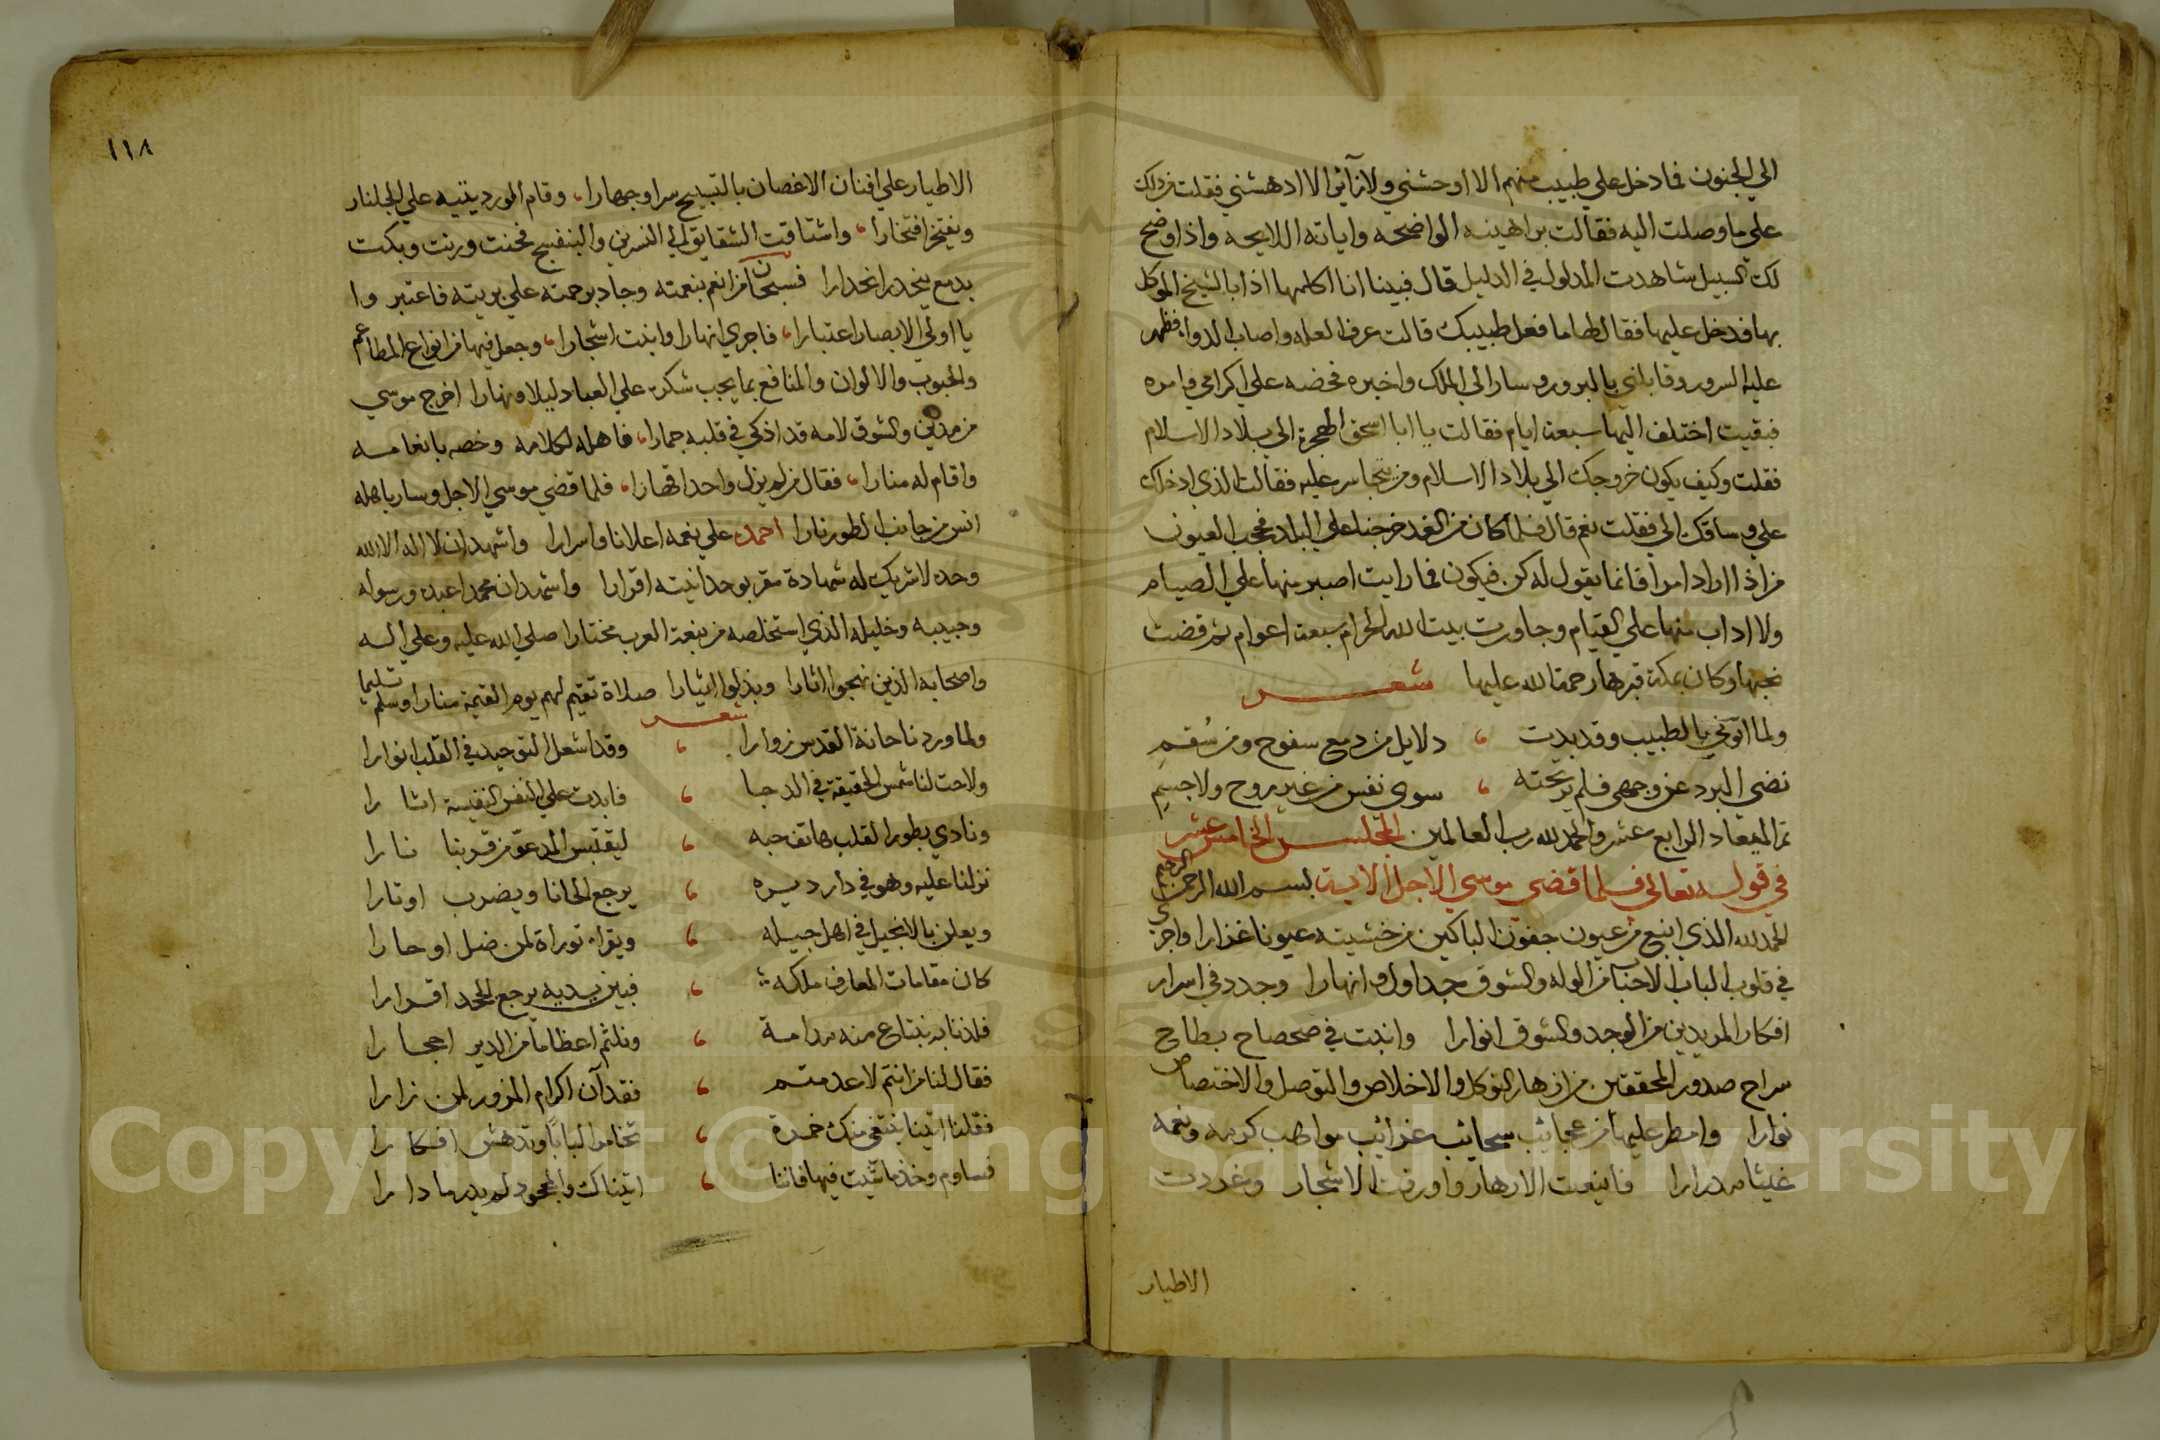 الي الجنون فما دخل علي طبيب منهم الا اوحشني ولا رآني الا ادهشني فقلت فمن دلك
علي ما وصلت اليه فقالت براهينه الواضحه واياته اللايحه واذا وضح
لك السبيل شاهدت المدلول في الدليل قال فبينا انا اكلمها اذا بالشيخ الموكل
بها قد دخل عليها فقال لها ما فعل طبيبك قالت عرف العله واصاب الدواء فظهر
عليه السرور وقابلني بالبرور وسار الي الملك واخبره فحضه علي اكرامي وامره
فبقيت اختلف اليها سبعة ايام فقالت يا ابا اسحق الهجرة الي بلاد الاسلام
فقلت وكيف يكون خروجك الي بلاد الاسلام ومن يتجاسر عليه فقالت الذي ادخلك
علي وساقك الي فقلت نعم قال فلما كان من الغد خرجنا علي البلد فحجب العيون
من اذا اراد امرا فانما يقول له كن فيكون فما رايت اصبر منها علي الصيام
ولا اداب منها علي القيام وجاورت بيت الله الحرام سبعة اعوام ثم قضت
نحبها وكان بمكة قبرها رحمة الله عليها شعر
ولما اتوني بالطبيب وقد بدت ، دلايل من دمع سفوح ومن سُقم
نضي البرد عن وجهي فلم ير تحته ، سوي نفس من غير روح ولا جسم
تم الميعاد الرابع عشر والحمد لله رب العالمين المجلس الخامس عشر
في قوله تعالي فلما قضي موسي الاجل الاية بسم الله الرحمن الرحيم
الحمد لله الذي انبع من عيون جفون الباكين من خشيته عيونا غزارا واجري
في قلوب الباب الاحباب من الوله والشوق جداول وانهارا وجدد في اسرار
افكار المريدين من الوجد والشوق انوارا وانبت في صحصاح بطاح
سراح صدور المحققين من ازهار التوكل والاخلاص والتوصل والاختصاص
نوارا وامطر عليها من عجائب سحايب غرائب مواهب كرمه ونعمه
غيثا مدرارا فاينعت الازهار واورقت الاشجار وغردت
الاطيار
١١٨
الاطيار علي افنان الاغصان بالتسبيح سرا وجهارا، وقام الورد يتيه علي الجلنار
ويفتخر افتخارا، واشتاقت الشقايق الي النسرين والبنفسج فحنت ورنت وبكت
بدمع ينحدر انحدارا فسبحان من انعم بنعمته وجاد برحمته علي بريته فاعتبروا
يا اولي الابصار اعتبارا، فاجري انهارا وانبت اشجارا، وجعل فيها من انواع المطاعم
والحبوب والالوان والمنافع بما يجب شكره علي العباد ليلا ونهارا اخرج موسي
من مدين والشوق لامه قد اذكي في قلبه جمارا، فاهله لكلامه وخصه بانعامه
واقام له منارا، فقال من لم يزل واحدا قهارا، فلما قضي موسي الاجل وسار باهله
انس من جانب الطور نارا احمده علي نعمه اعلانا واسرارا واشهد ان لا اله الا الله
وحده لا شريك له شهادة مقر بوحدانيته اقرارا واشهد ان محمدا عبده ورسوله
وحبيبه وخليله الذي استخلصه من نبعة العرب مختارا صلي الله عليه وعلي اله
واصحابه الذين نهجوا اثارا وبذلوا ايثارا صلاة تقيم لهم يوم القيمة منارا وسلم تسليما
شعر
ولما وردنا حانة القدس زوارا ، وقد اشعل التوحيد في القلب انوارا
ولاحت لنا شمس الحقيقة في الدجا ، فابدت علي النفس النفيسة اثارا
ونادي بطور القلب هاتف حبه ، ليقتبس المدعو من قربنا نارا
نزلنا عليه وهو في دار ديره ، يرجع الحانا ويضرب اوتارا
ويعلن بالانجيل في اهل جيله ، ويقرا توراة لمن ضل او حارا
كان مقامات المعارف ملكه ، فبين يديه يرجع الجحد اقرارا
فلذنا به نبتاع منه مدامة ، ونلثم اعظاما من الدير احجارا
فقال لنا من انتم لا عدمتم ، فقد آن اكرام المزور لمن زارا
فقلنا اتينا نبتغي منك خمرة ، تخامر البابا وتدهش افكارا
فساوم وخذ ما شيت فيها فاننا ، اتيناك والمحمود لم يدر ما دارا